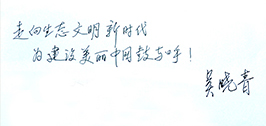 走向生态文明新时代
为建设美丽中国鼓与呼！
吴晓青